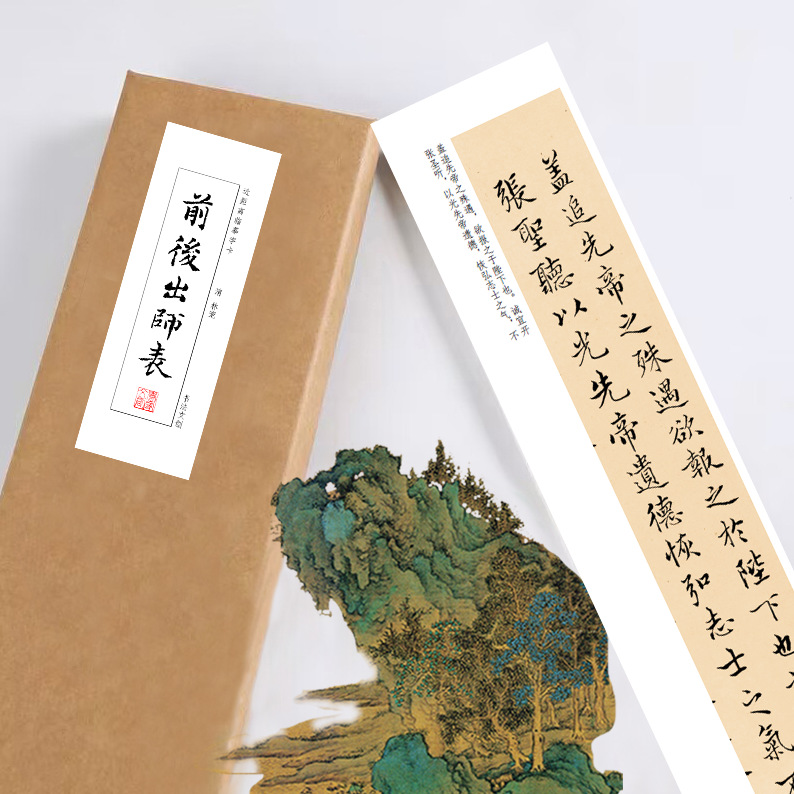 近距离临摹字卡
前後出師表
盖追先帝之殊遇，欲报之于陛下也。诚宜开
张圣听，以光先帝遗德，恢弘志士之气，不
蓋追先帝之殊遇欲報之於陛下也
張聖聽以光先帝遺德恢弘志士之氣不